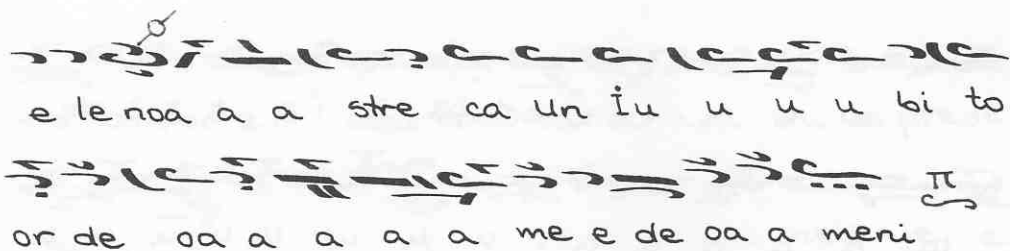 e le noa a a stre ca un İu u u u bi to
or de oa a a a a me e de oa a meni
π